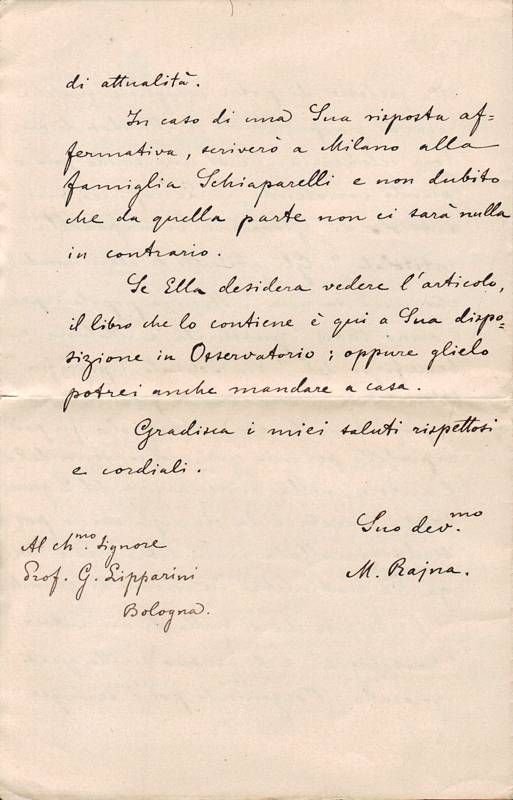 di attualità.
In caso di una Sua risposta af=
fermativa, scriverò a Milano alla
famiglia Schiaparelli e non dubito
che da quella parte non ci sarà nulla
in contrario.
Se Ella desidera vedere l'articolo,
il libro che lo contiene è qui a Sua dispo=
sizione in Osservatorio; oppure glielo
potrei anche mandare a casa.
Gradisca i miei saluti rispettosi
e cordiali.
Suo dev.mo
M. Rajna.
Al ch.mo Signore
Prof. G. Lipparini
Bologna.